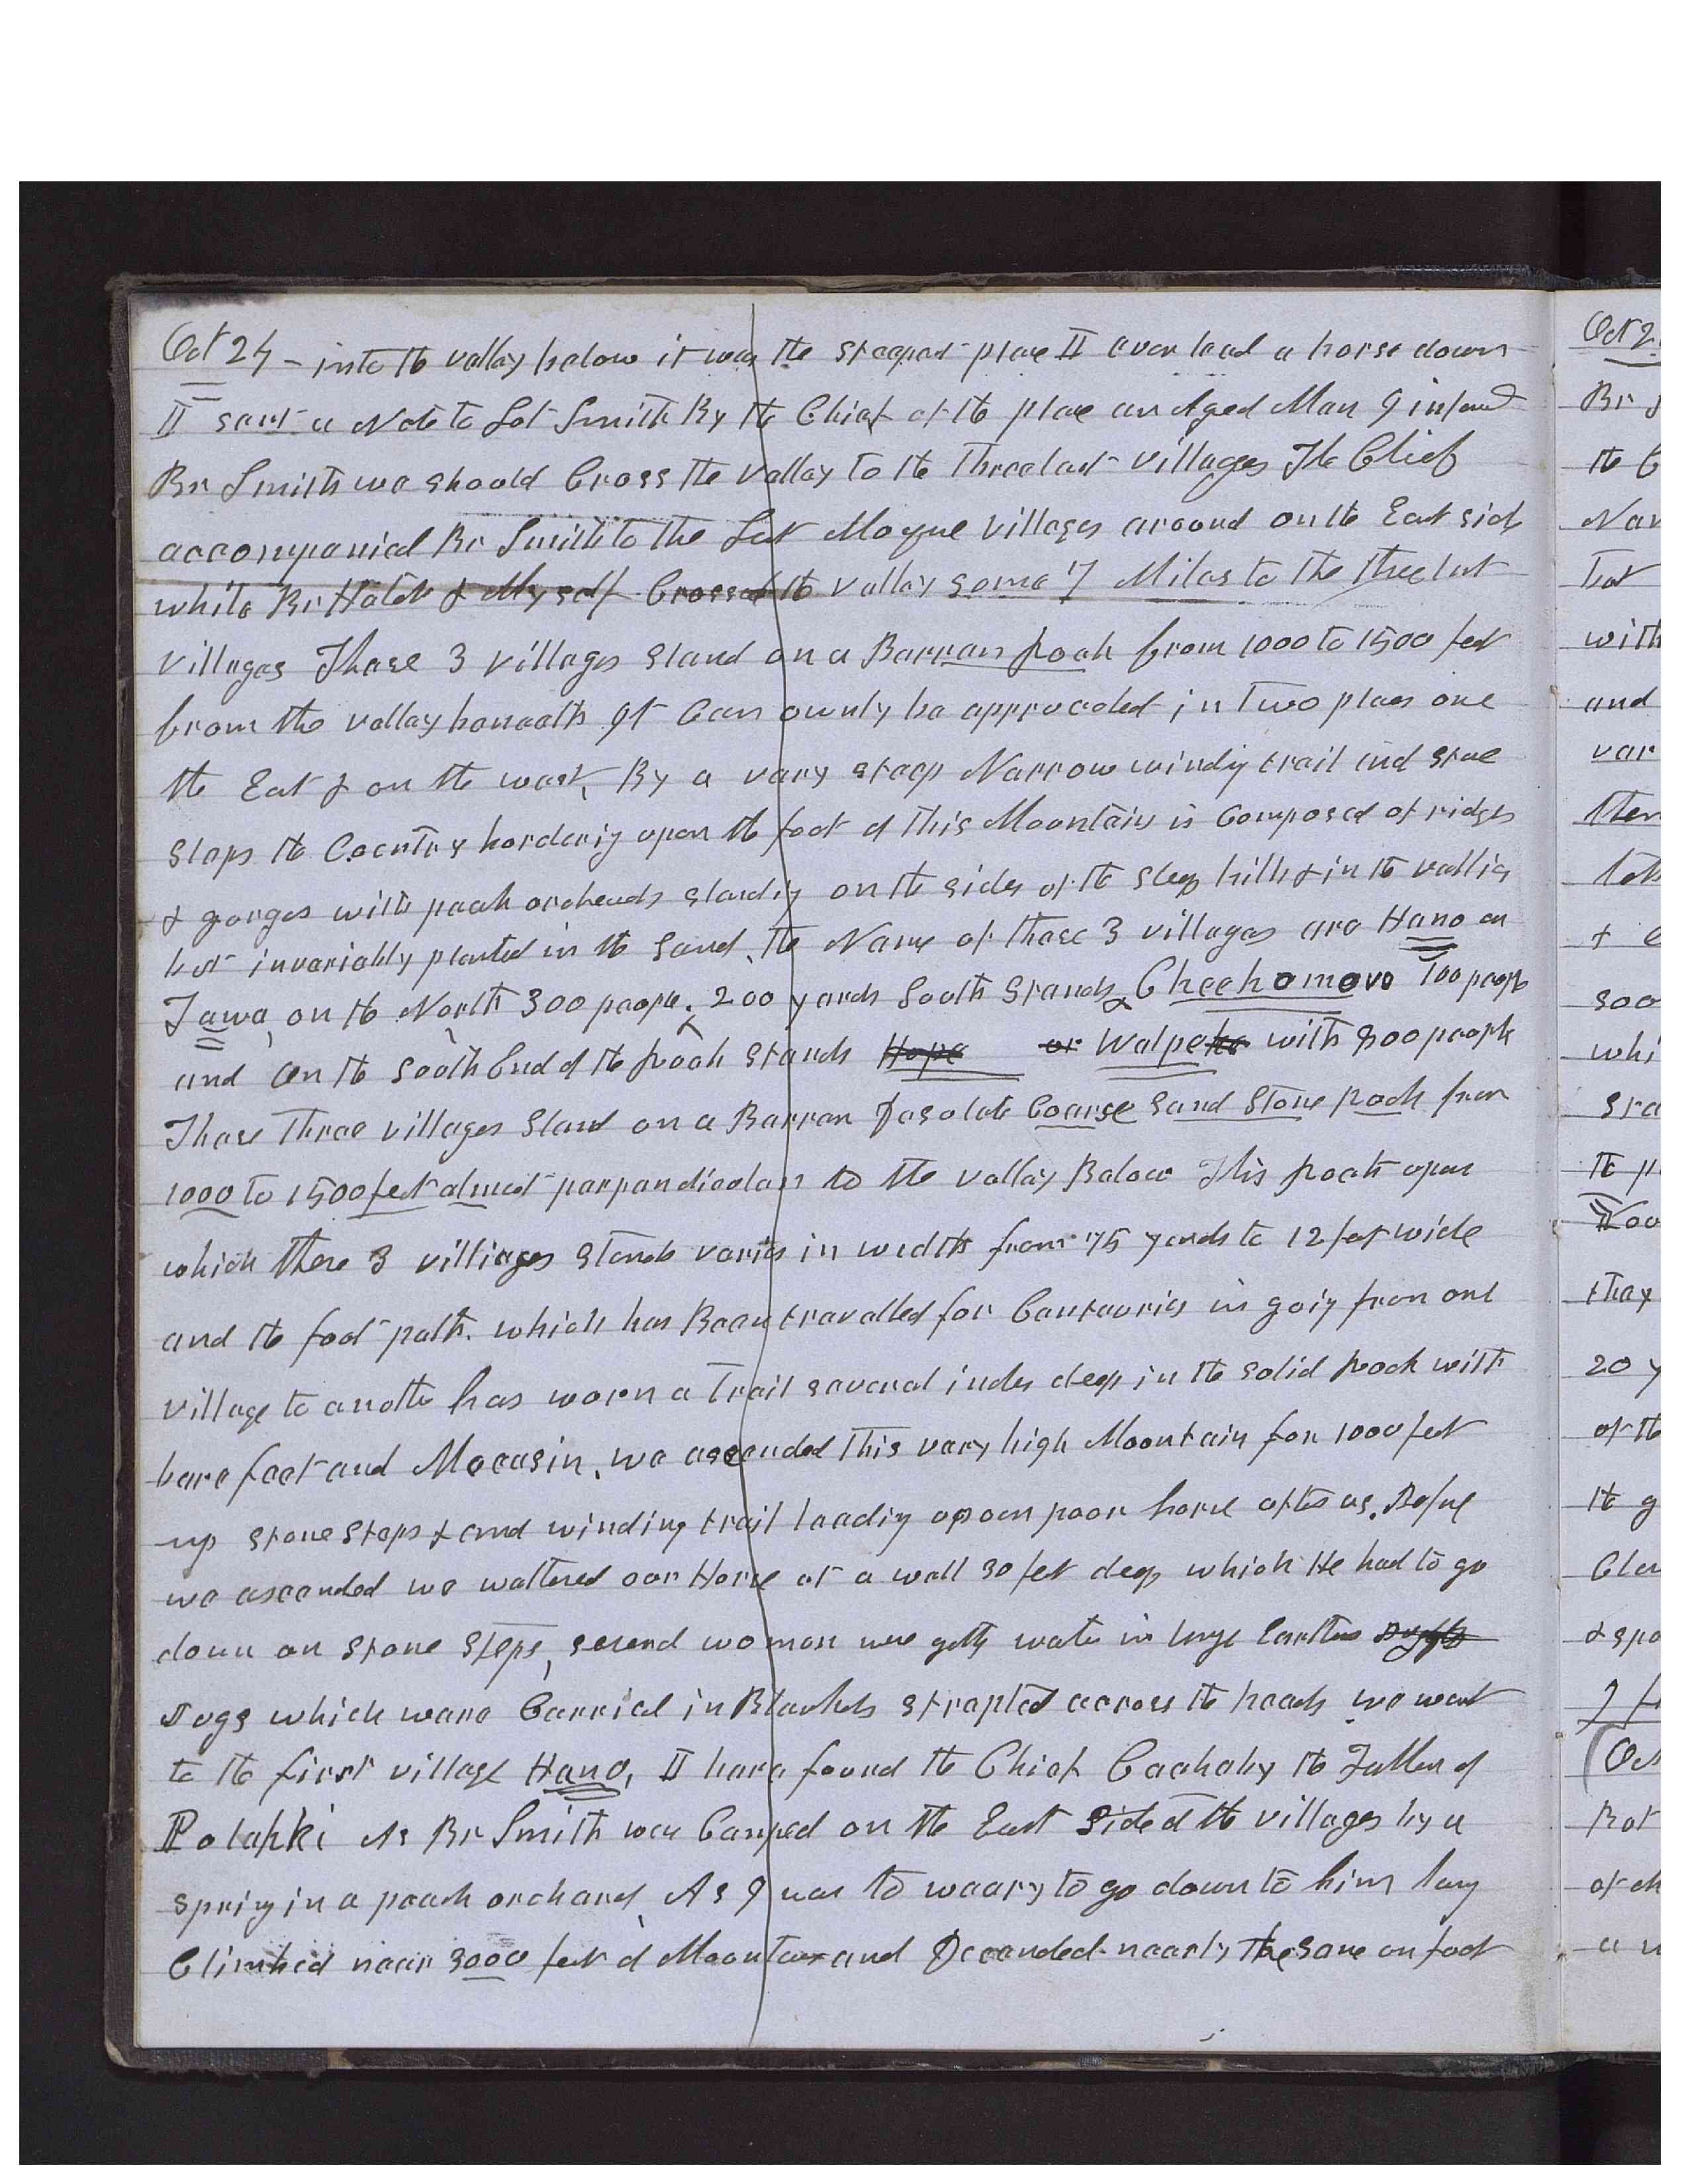 Oct 24 - into the valley below it was the steepest place I ever lead a horse down
I sent a Note to Lot Smith By the Chief of the place an Aged Man I infomd
Br Smith we should Cross the valley to the Three last villages The Chief
accompanied Br Smith to the Last Moquie villages around on the East side
while Br Hatch & Myself Crossed the valley some 7 Miles to the three last
villages These 3 villages stand on a Barren Rock from 1000 to 1500 feet
from the valley beneath It Can ownly be approached in Two places one
the East & on the west, By a very steep Narrow windig trail and stone
steps the Country borderig upon the foot of this Mountain is Composed of ridges
& gorges with peach orchards standig on the sides of the steep hills & in the vallies
but invariably planted in the sand, the Name of these 3 villages are Hano or
Tawa, on the North 300 people, 200 yards South stands Cheechomovo 100 people
and on the South End of the Rock stands Hope or Walpeke with 300 people
These Three villages Stand on a Barren Desolate Coarse Sand Stone Rock from
1000 to 1500 feet almost perpendicular to the valley Below This Rock upon
which there 3 villiages stands varies in width from 75 yards to 12 feet wide
and the foot path. which has Been travelled for Centauries in goig from one
village to another has worn a Trail several inches deep in the solid Rock with
bare feet and Mocasin, we ascended This very high Mountain for 1000 feet
up stone steps & and winding trail leadig up our poor horse after us. Before
we ascended we wattered our Horse at a well 30 feet deep which He had to go
down on stone steps, several women were gettg water in large Earthen Juggs
Jugs which ware Carried in Blankets strapted across the heads we went
to the first village Hano, I here found the Chief Cachaby the Father of
Polahki As Br Smith was Camped on the East Side of the villages by a
sprig in a peach orchard As I was to weary to go down to him havg
Climbed near 3000 feet of Mountain and Decended nearly the same on foot
Oct 2
Br
the C
Nav
with
and
var
then
+
300
whi
sta
the p
thay
20 y
of the
the g
& spo
Oct